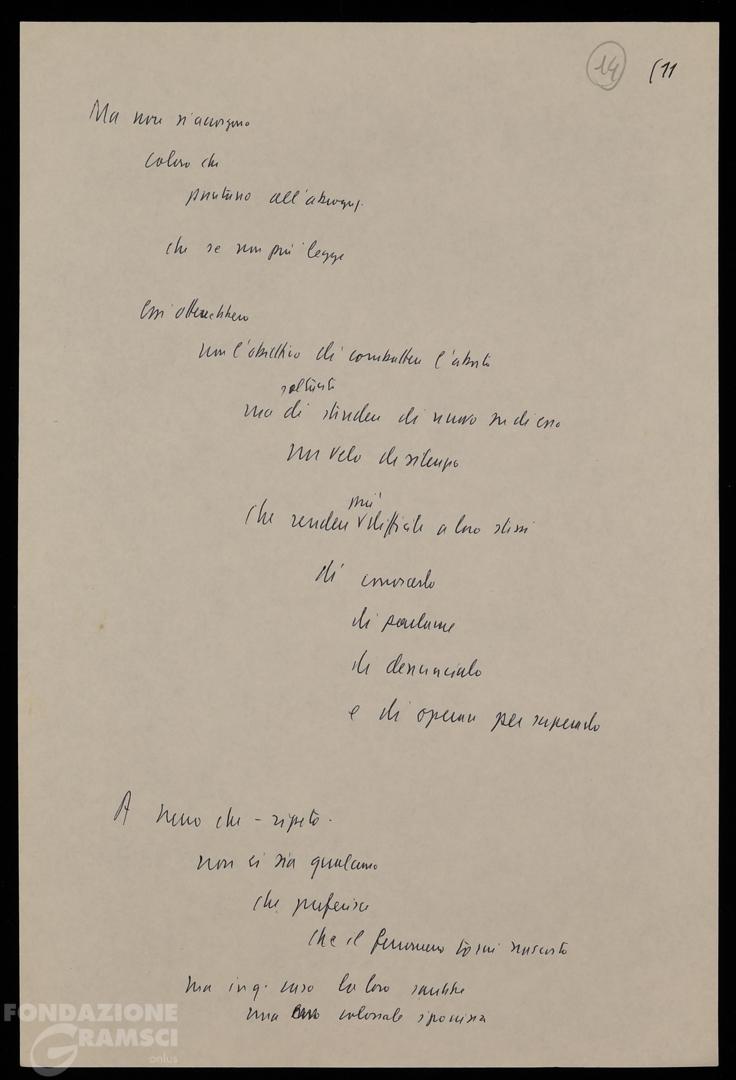 14 (11
Ma non si accorgono
coloro che
puntano all'abrogaz.
che se non più legge
Essi otterrebbero
non l'obiettivo di combattere l'aborto
soltanto
ma di stendere di nuovo su di esso
un velo di silenzio
più
che rendere difficile a loro stessi
di conoscerlo
di parlarne
di denunciarlo
e di operare per superarlo
A meno che - ripeto -
non ci sia qualcuno
che preferisce
che il fenomeno torni nascosto
ma in q. caso la loro sarebbe
una colossale ipocrisia
FONDAZIONE
GRAMSCI
onlus